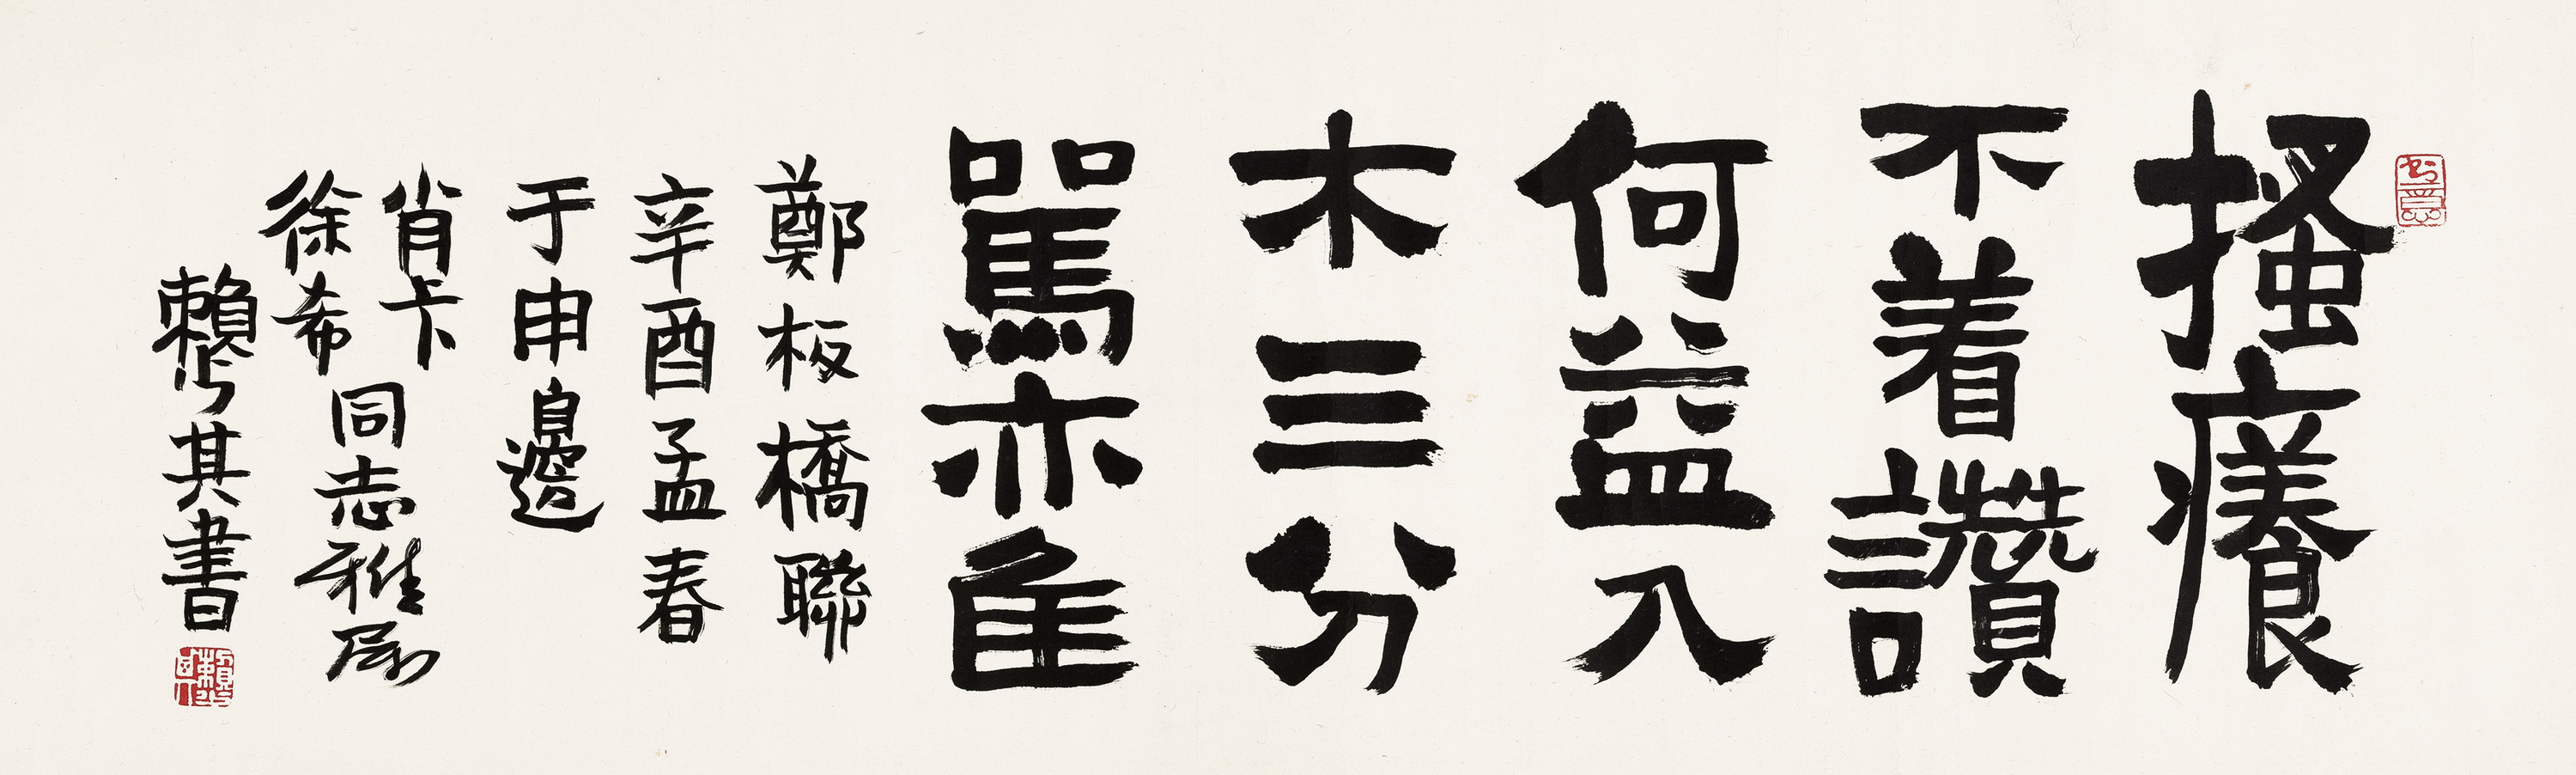 搔癢
不着讚
何益入
木三分
駡亦佳
鄭板橋聯
辛酉孟春
于申邊
肖卡
徐希
同志雅属
賴少其書